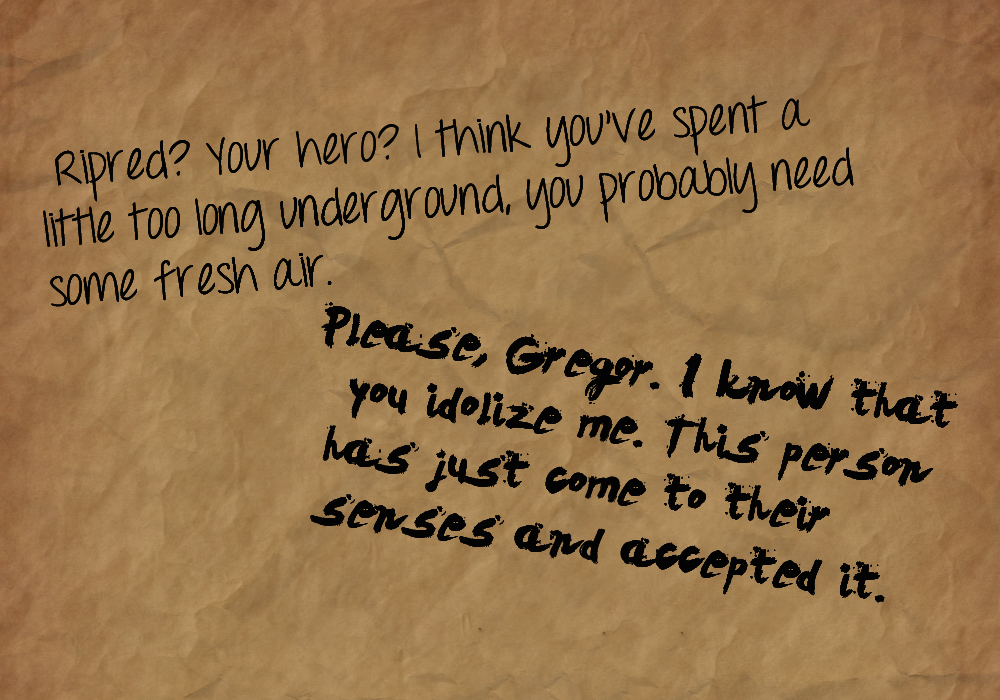 Ripred? Your hero? I think you've spent a
little too long underground, you probably need
some fresh air.
Please, Gregor. I know that
you idolize me. This person
has just come to their
senses and accepted it.